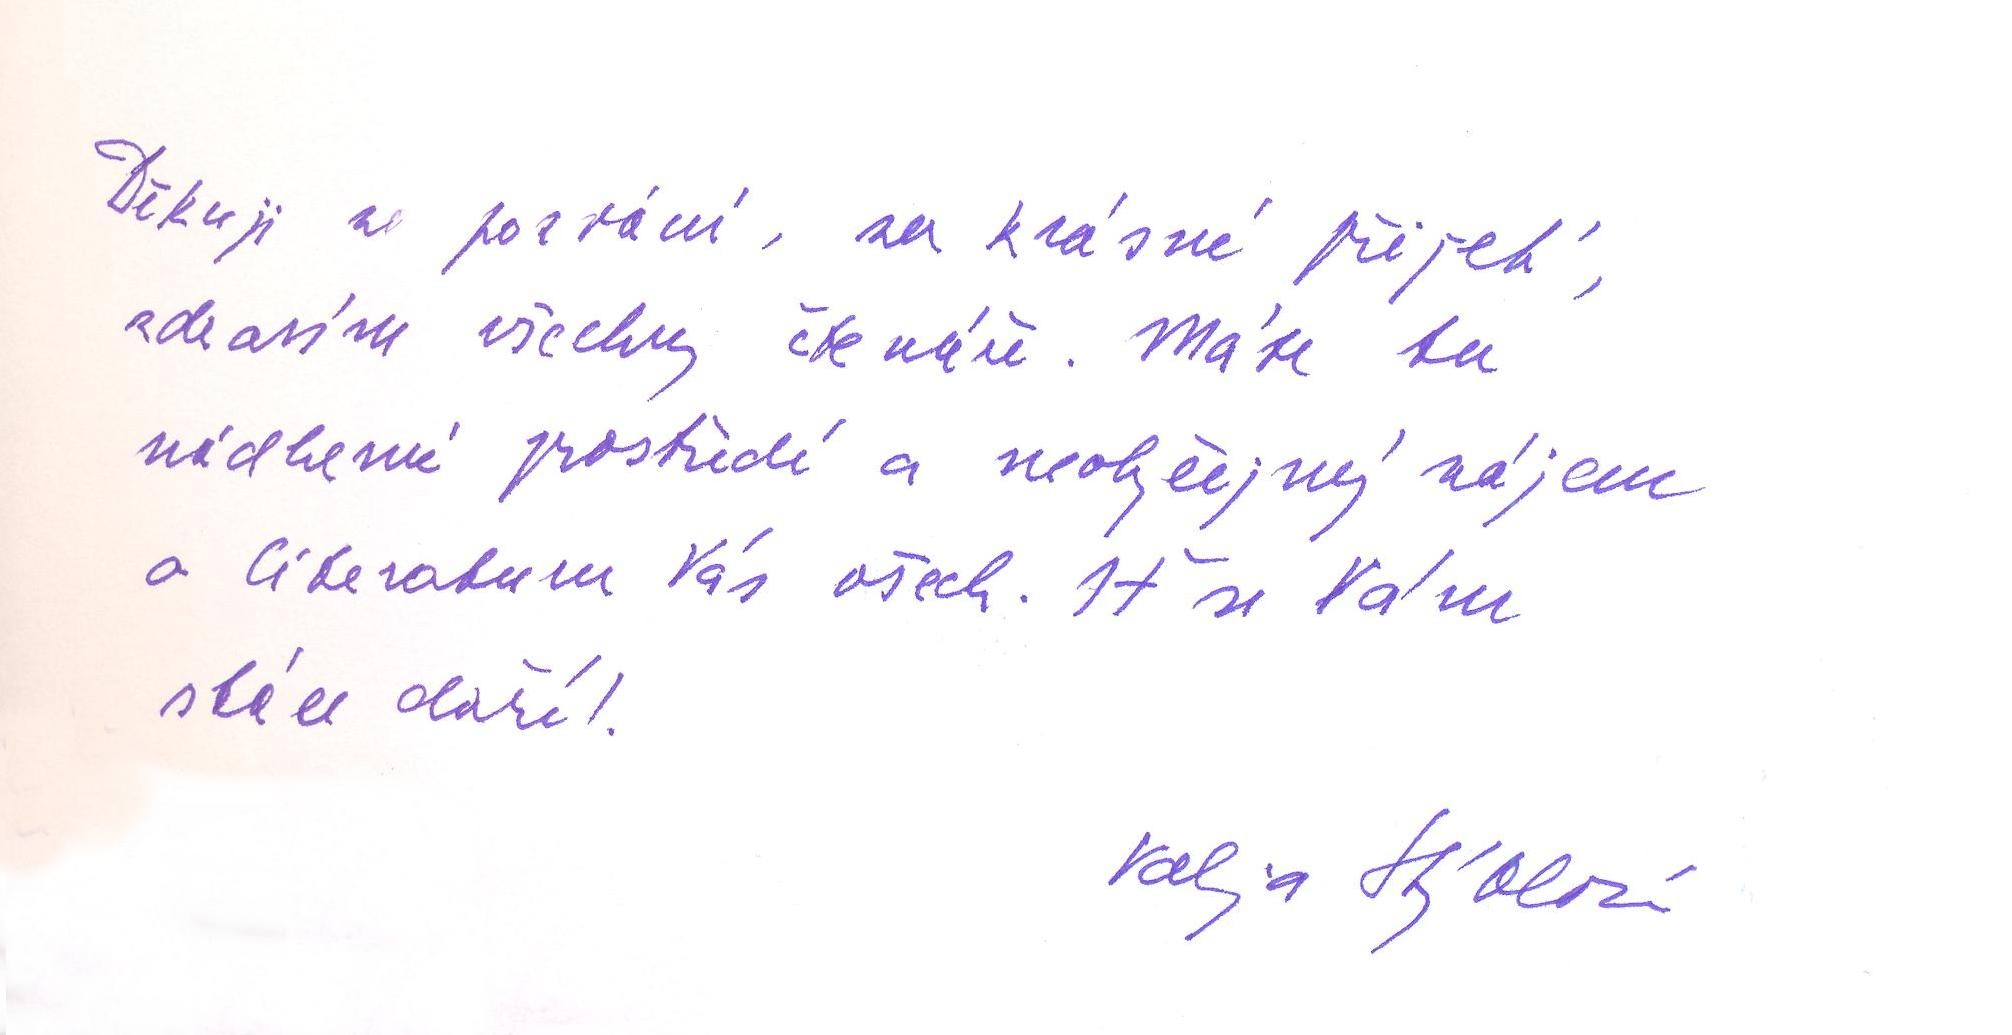 Děkuji za pozvání, za krásné přijetí,
zdravím všechny čtenáře. Máte tu
nádherné prostředí a neobyčejný zájem
o literaturu Vás všech. Ať se Vám
stále daří!
Valja Stýblová